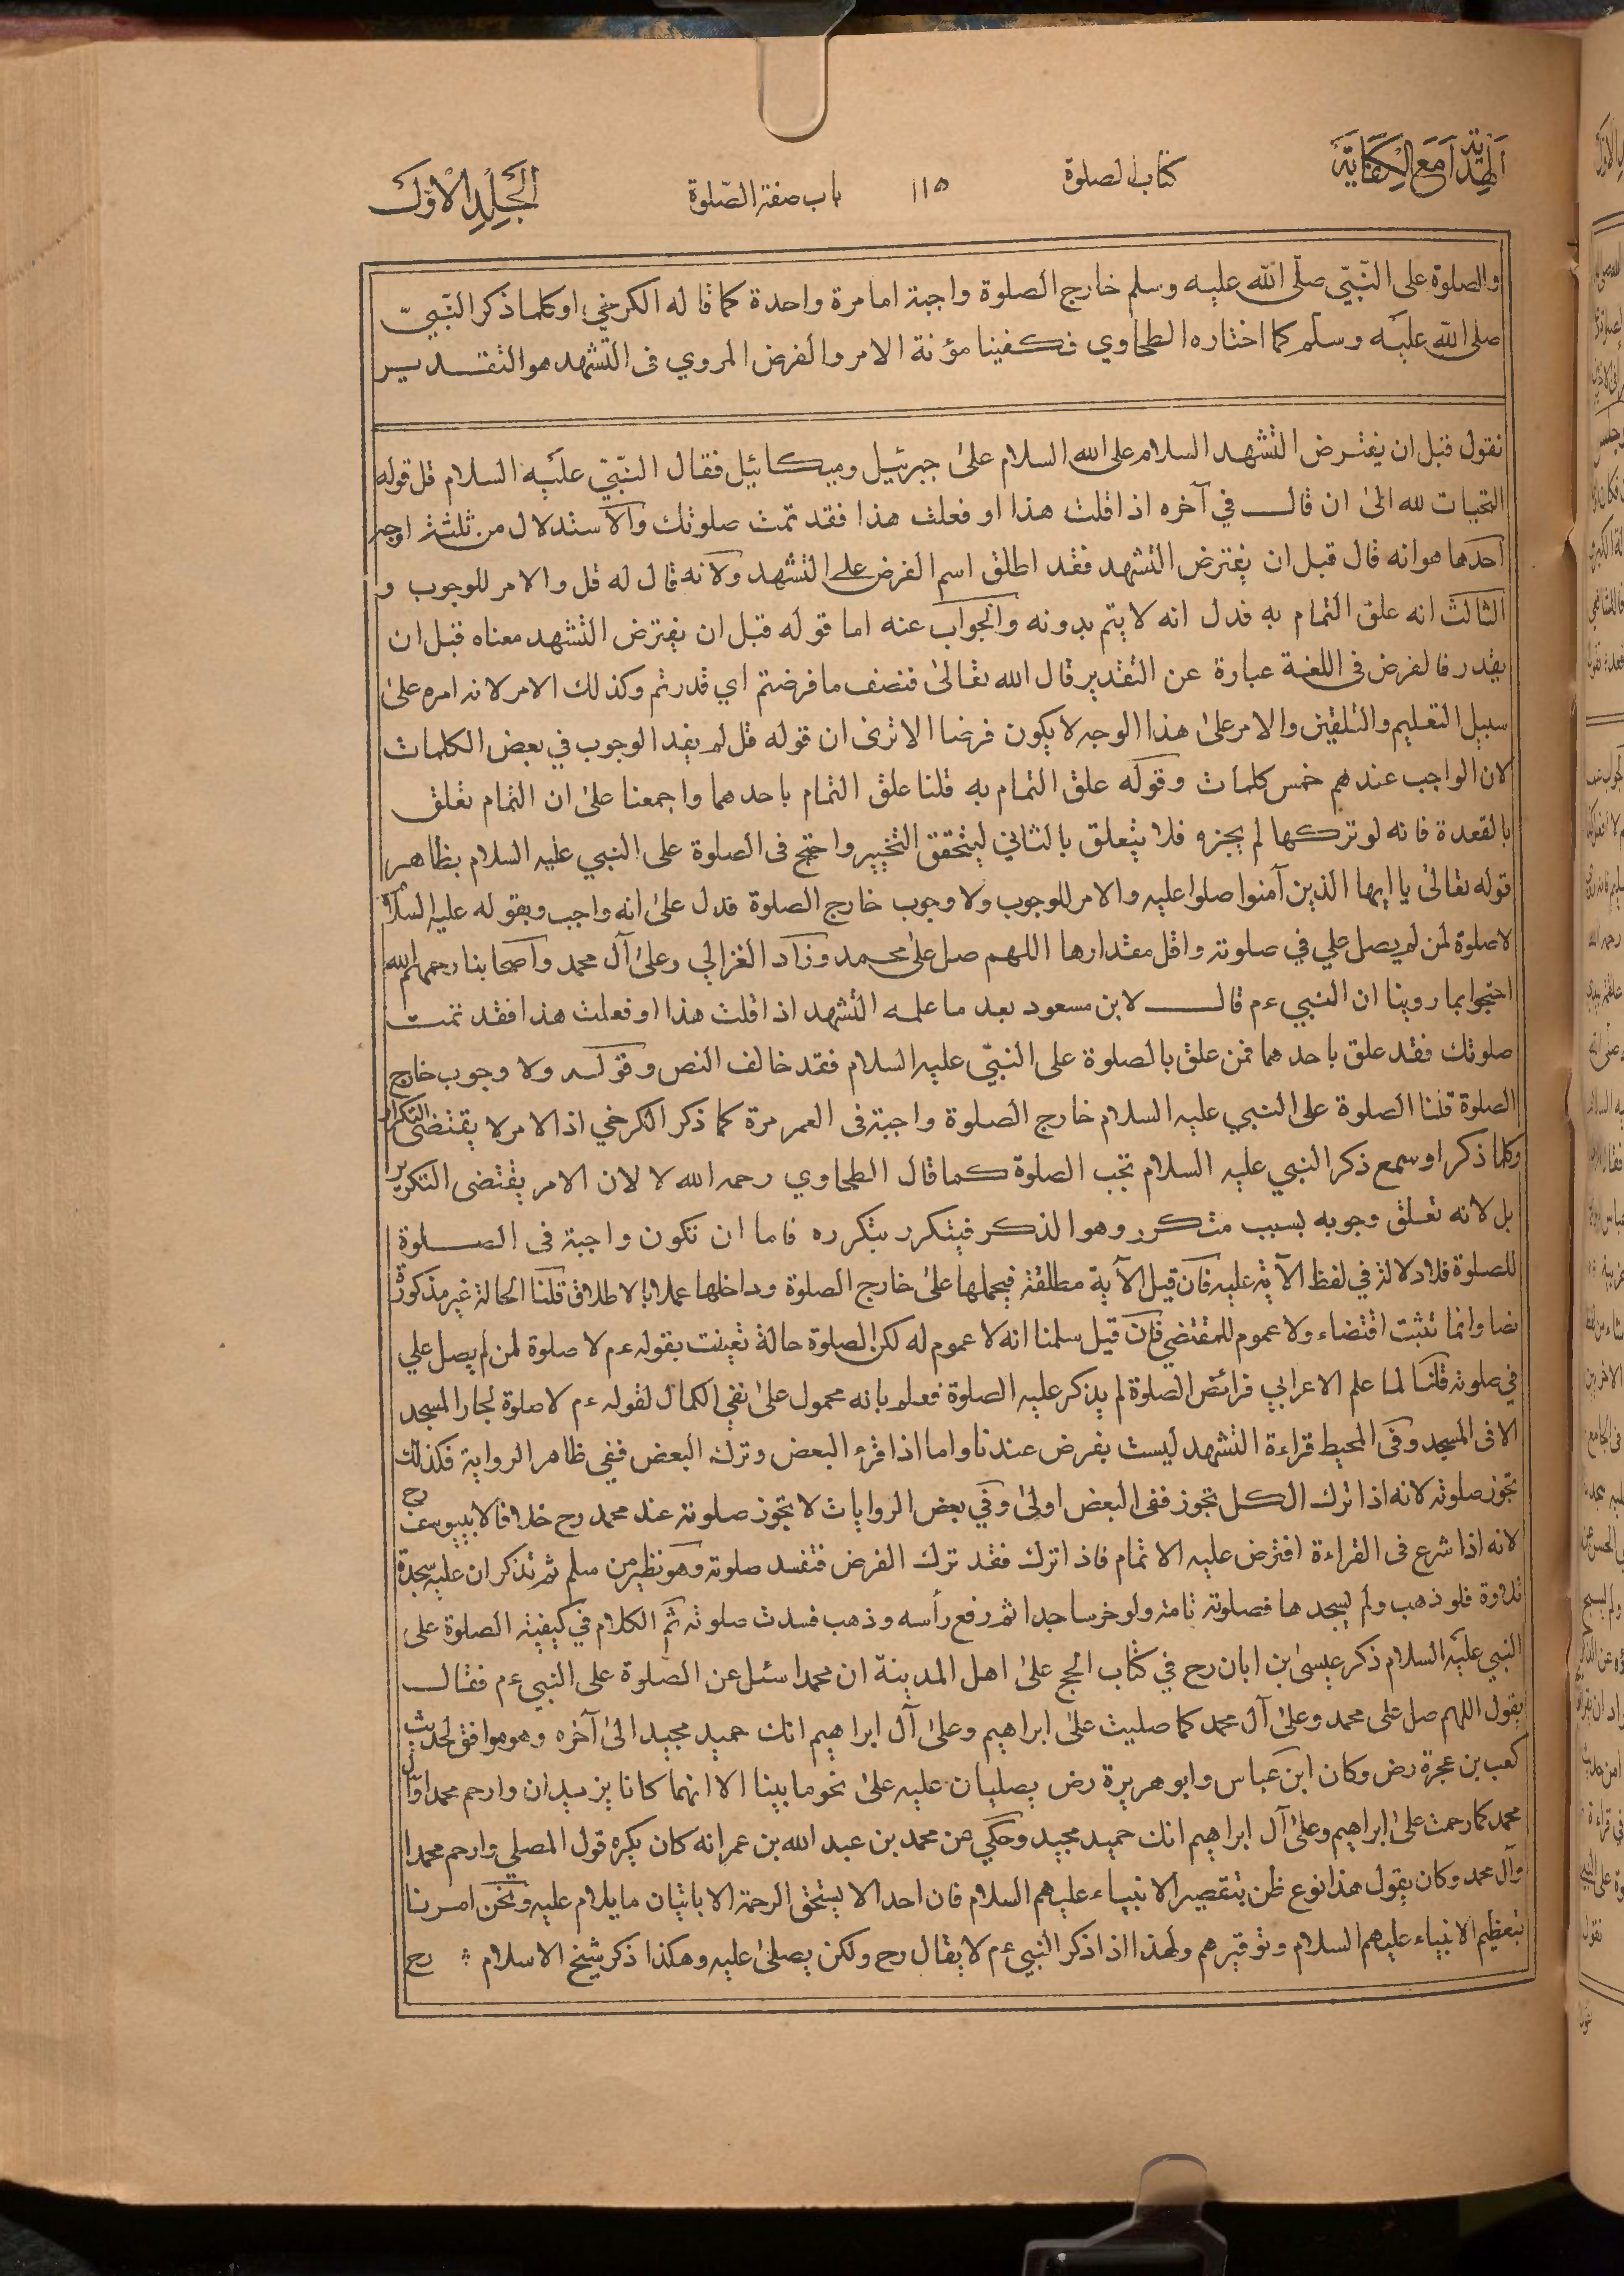 الهداية مع الكفاية
كتاب الصلوة
١١٥
باب صفة الصلوة
الجلد الاول
والصلوة على النبي صلى الله عليه وسلم خارج الصلوة واجبة اما مرة واحدة كما قاله الكرخي او كلما ذكر النبي
صلى الله عليه وسلم كما اختاره الطحاوي فكفينا مؤنة الامر والفرض المروي في التشهد هو التقدير
نقول قبل ان يفترض التشهد السلام على الله السلام على جبرئيل وميكائيل فقال النبي عليه السلام قل قوله
التحيات لله الى ان قال في آخره اذا قلت هذا او فعلت هذا فقد تمت صلوتك والاستدلال من ثلثة اوجه
احدها هو انه قال قبل ان يفترض التشهد فقد اطلق اسم الفرض على التشهد ولانه قال له قل والامر للوجوب و
الثالث انه علق التمام به فدل انه لا يتم بدونه والجواب عنه اما قوله قبل ان يفترض التشهد معناه قبل ان
يقدر فالفرض في اللغة عبارة عن التقدير قال الله تعالى فنصف ما فرضتم اي قدرتم وكذلك الامر لانه امره على
سبيل التعليم والتلقين والامر على هذا الوجه لا يكون فرضا الا ترى ان قوله قل لم يفد الوجوب في بعض الكلمات
لان الواجب عندهم خمس كلمات وقوله علق التمام به قلنا علق التمام باحدهما واجمعنا على ان التمام تعلق
بالقعدة فانه لو تركها لم يجزه فلا يتعلق بالثاني ليتحقق التخيير واحتج في الصلوة على النبي عليه السلام بظاهر
قوله تعالى يا ايها الذين آمنوا صلوا عليه والامر للوجوب ولا وجوب خارج الصلوة فدل على انه واجب وبقوله عليه السلام
لا صلوة لمن لم يصل علي في صلوته واقل مقدارها اللهم صل على محمد وزاد الغزالي وعلى آل محمد واصحابنا رحمهم الله
احتجوا بما روينا ان النبي ءم قال لابن مسعود بعد ما علمه التشهد اذا قلت هذا او فعلت هذا فقد تمت
صلوتك فقد علق باحدهما فمن علق بالصلوة على النبي عليه السلام فقد خالف النص وقوله ولا وجوب خارج
الصلوة قلنا الصلوة على النبي عليه السلام خارج الصلوة واجبة في العمر مرة كما ذكر الكرخي اذ الامر لا يقتضي التكرار
وكلما ذكر او سمع ذكر النبي عليه السلام تجب الصلوة كما قال الطحاوي رحمه الله لا لان الامر يقتضى التكرير
بل لانه تعلق وجوبه بسبب متكرر وهو الذكر فيتكرر بتكرره فاما ان تكون واجبة في الصلوة
للصلوة فلا دلالة في لفظ الآية عليه فان قيل الآية مطلقة فيحملها على خارج الصلوة وداخلها عملا بالاطلاق قلنا الحالة غير مذكورة
نصا وانما تثبت اقتضاء ولا عموم للمقتضي فان قيل سلمنا انه لا عموم له لكن الصلوة حالة تعينت بقوله ءم لا صلوة لمن لم يصل علي
في صلوته قلنا لما علم الاعرابي فرائض الصلوة لم يذكر عليه الصلوة فعلم بانه محمول على نفي الكمال لقوله ءم لا صلوة لجار المسجد
الا في المسجد وفي المحيط قراءة التشهد ليست بفرض عندنا واما اذا قرء البعض وترك البعض ففي ظاهر الرواية فكذلك
تجوز صلوته لانه اذا ترك الكل تجوز ففي البعض اولى وفي بعض الروايات لا تجوز صلوته عند محمد رح خلافا لابييوسف رح
لانه اذا شرع في القراءة افترض عليه الاتمام فاذا ترك فقد ترك الفرض فتفسد صلوته وهو نظير من سلم ثم تذكر ان عليه سجدة
تلاوة فلو ذهب ولم يسجدها فصلوته تامة ولو خر ساجدا ثم رفع رأسه وذهب فسدت صلوته ثم الكلام في كيفية الصلوة على
النبي عليه السلام ذكر عيسى بن ابان رح في كتاب الحج على اهل المدينة ان محمدا سئل عن الصلوة على النبي ءم فقال
يقول اللهم صل على محمد وعلى آل محمد كما صليت على ابراهيم وعلى آل ابراهيم انك حميد مجيد الى آخره وهو موافق لحديث
كعب بن عجرة رض وكان ابن عباس وابو هريرة رض يصليان عليه على نحو ما بينا الا انهما كانا يزيدان وارحم محمدا وآل
محمد كما رحمت على ابراهيم وعلى آل ابراهيم انك حميد مجيد وحكي عن محمد بن عبد الله بن عمر انه كان يكره قول المصلي وارحم محمدا
وآل محمد وكان يقول هذا نوع ظن بتقصير الانبياء عليهم السلام فان احدا لا يستحق الرحمة الا باتيان ما يلام عليه ونحن امرنا
بتعظيم الانبياء عليهم السلام وتوقيرهم ولهذا اذا ذكر النبي ءم لا يقال رح ولكن يصلى عليه وهكذا ذكر شيخ الاسلام رح